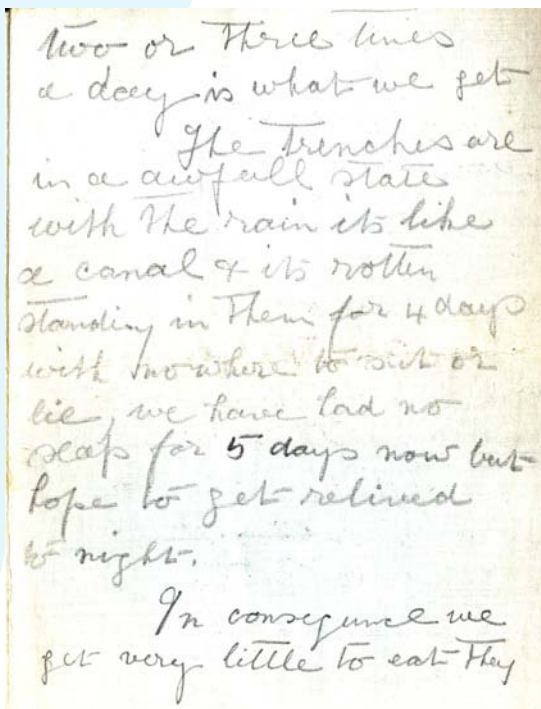 two or three times
a day is what we get
The trenches are
in a awfall state
with the rain its like
a canal & its rotten
standing in them for 4 days
with nowhere to sit or
lie, we have had no
sleap for 5 days now but
hope to get relived
to night.
In consequnce we
get very little to eat They